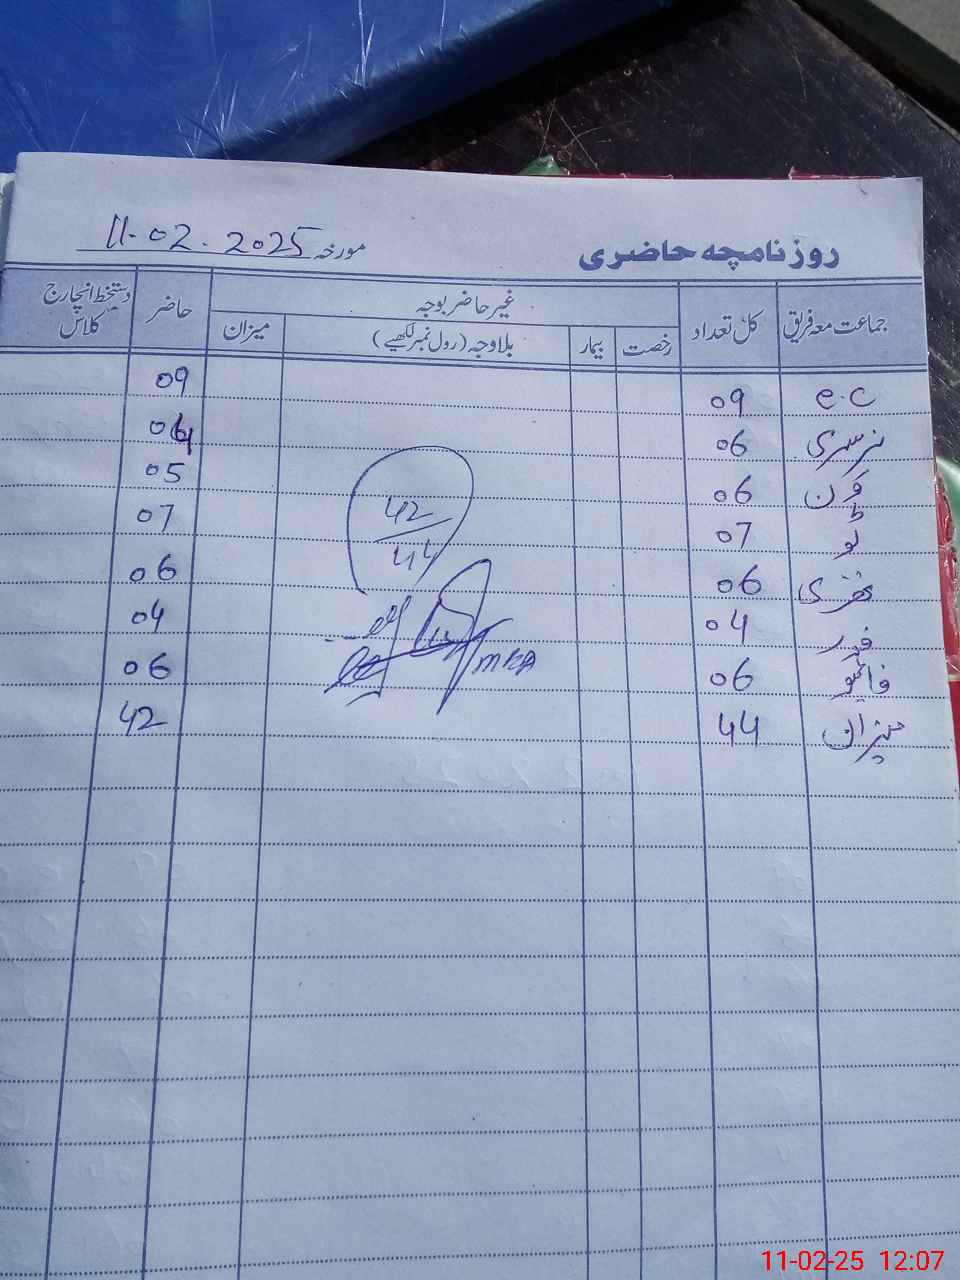 روزنامچہ حاضری مورخہ 11-02-2025
جماعت معہ فریق کل تعداد غیر حاضر بوجہ حاضر دستخط انچارج کلاس
رخصت بیمار بلاوجہ (رول نمبر لکھیے) میزان
e.c 09 09
نرسری 06
ون 06 05
ٹو 07 07
تھری 06 06
فور 04 04
فائیو 06 06
میزان 44 42
42
44
11-02-25 12:07